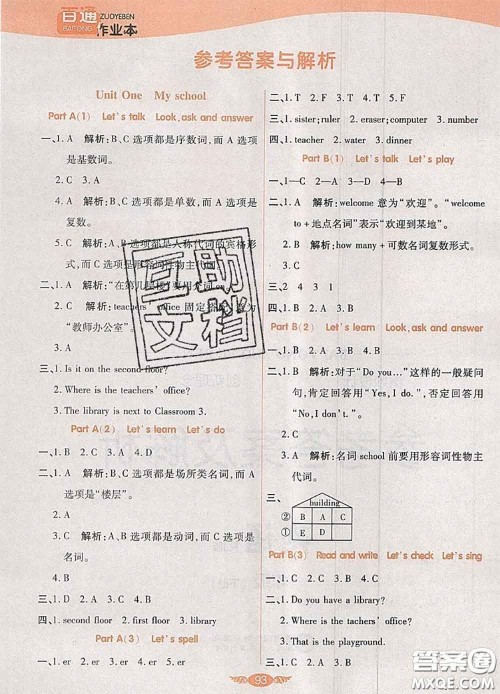 百通
BAITONG
ZUOYEBEN
作业本
参考答案与解析
Unit One My school
Part A(1) Let's talk Look,ask and answer
一、1. A 解析：B、C 选项都是序数词，而 A 选项
是基数词。
2. C A
3. A 解析：B、C 选项都是单数，而 A 选项是
复数。
4. B 解析：A、B 选项都是人称代词的宾格形
式，而 C 选项是形容词性物主代词。
二、1. A
2. B teachers' office
“教师办公室”。
3. C 4. B 5. A
三、1. Is it on the second floor?
2. Where is the teachers' office?
3. The library is next to Classroom 3.
Part A(2) Let's learn Let's do
一、1. B 2. C 3. A 4. D
二、1. A 解析：B、C 选项都是场所类名词，而 A
选项是“楼层”。
2. B
3. C 解析：A、B 选项都是动词，而 C 选项是
名词。
4. B
三、1. D 2. A 3. B 4. C
四、1. second floor 2. first floor 3. library
Part A(3) Let's spell
一、1. er 2. er 3. er 4. er
二、1. T 2. F 3. F 4. T 5. T
三、1. sister; ruler 2. eraser; computer 3. number
四、1. teacher 2. water 3. dinner
Part B(1) Let's talk Let's play
一、1—C 2—D 3—A 4—B
二、1. A 解析：welcome 意为“欢迎”。“welcome
to + 地点名词”表示“欢迎到某地”。
2. C
3. B 解析：how many + 可数名词复数形式。
三、2 4 3 1
四、1. A 2. B 3. B
Part B(2) Let's learn Look,ask and answer
一、1. D 2. C 3. A 4. B
二、1. B
2. B 解析：对于“Do you...”这样的一般疑问
句，肯定回答用“Yes, I do.”，否定回答用
“No, I don't.”。
3. C
4. A 解析：名词 school 前要用形容词性物主
代词。
三、
building
② B A E
① D C
Part B(3) Read and write Let's check Let's sing
一、1. C 2. B 3. A 4. B
二、1. Do you have a library?
2. Where is the tachers' office?
3. That is the playground.
三、1. B 2. A 3. B 4. C
互助
文档
93
答案圈
MXQE.COM